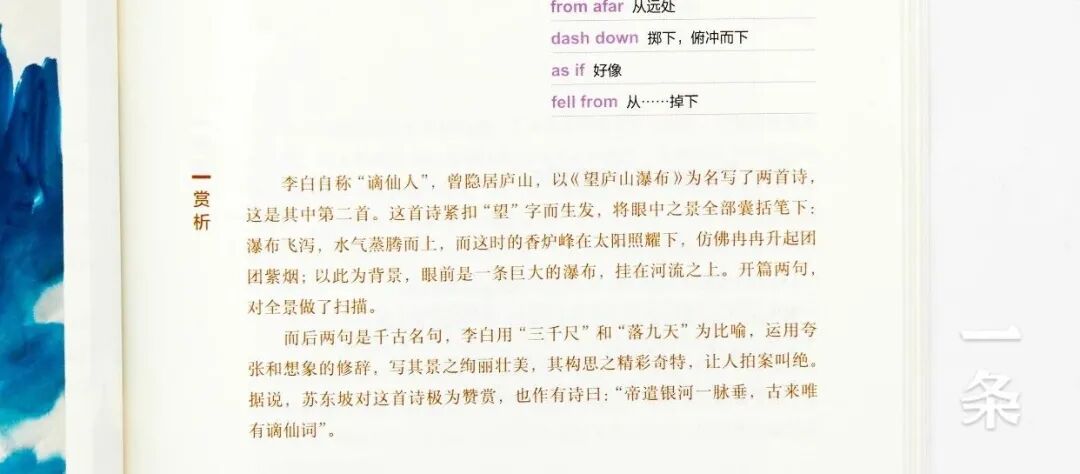 from afar 从远处
dash down 掷下，俯冲而下
as if 好像
fell from 从……掉下
赏析
李白自称“谪仙人”，曾隐居庐山，以《望庐山瀑布》为名写了两首诗，
这是其中第二首。这首诗紧扣“望”字而生发，将眼中之景全部囊括笔下：
瀑布飞泻，水气蒸腾而上，而这时的香炉峰在太阳照耀下，仿佛冉冉升起团
团紫烟；以此为背景，眼前是一条巨大的瀑布，挂在河流之上。开篇两句，
对全景做了扫描。
而后两句是千古名句，李白用“三千尺”和“落九天”为比喻，运用夸
张和想象的修辞，写其景之绚丽壮美，其构思之精彩奇特，让人拍案叫绝。
据说，苏东坡对这首诗极为赞赏，也作有诗曰：“帝遣银河一脉垂，古来唯
有谪仙词”。
一条